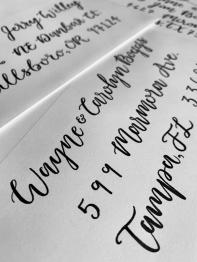 Jerry Willey
NE Dunbar Ct
Hillsboro, OR 97124
Wayne & Carolyn Boggs
599 Marmora Ave.
Tampa, FL 336